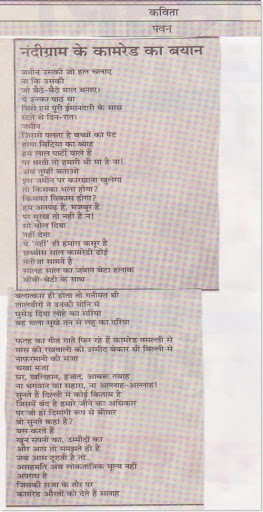 कविता
पवन
नंदीग्राम के कामरेड का बयान
जमीन उसकी जो हल चलाए
ना कि उसकी
जो बैठे-बैठे माल बनाए।
ये उनका पाठ था
जिसे हम पूरी ईमानदारी के साथ
रटते थे दिन-रात।
जमीन
जिससे पलता है बच्चों का पेट
होगा बिटिया का ब्याह
हम लाल पार्टी वाले हैं
पर धरती तो हमारी भी मां है ना!
अब तुम्हीं बताओ
इस जमीन पर कारखाना खुलेगा
तो किसका भला होगा?
किसका विकास होगा?
हम अनपढ़ हैं, मजबूर हैं
पर मूरख तो नहीं हैं ना!
सो बोल दिया
नहीं देंगे
ये 'नहीं' ही हमारा कसूर है
छब्बीस साल कामरेडी ढोई
नतीजा सामने है
सोलह साल का जवान बेटा हलाक
बीवी-बेटी के साथ
बलात्कार ही होता तो गनीमत थी
लालवीरों ने उनकी योनि में
घुसेड़ दिया लोहे का सरिया
बह चला सूखे तन से लहू का दरिया
फतह का गीत गाते फिर रहे हैं कामरेड तसल्ली से
मांस की रखवाली की उम्मीद बेकार थी बिल्ली से
नाफरमानी की सजा
चखा मजा
घर, खलिहान, इज्जत, आबरू तबाह
ना भगवान का सहारा, ना अल्लाह-अल्लाह!
सुनते हैं दिल्ली में कोई किताब है
जिसमें बंद है हमारे जीने का अधिकार
पर जो हों दिमागी रूप से बीमार
वो सुनते कहां हैं?
बस करते हैं
खून सपनों का, उम्मीदों का
और आप तो समझते ही हैं
जब आस टूटती है तो..
असहमति अब लोकतांत्रिक मूल्य नहीं
अपराध है
जिसकी सजा के तौर पर
कामरेड औरतों को देते हैं सलाह